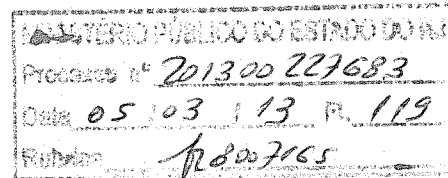 MINISTÉRIO PÚBLICO DO ESTADO DO RJ
Processo nº 201300227683
Data 05 / 03 / 13 Fl. 119
Rubrica